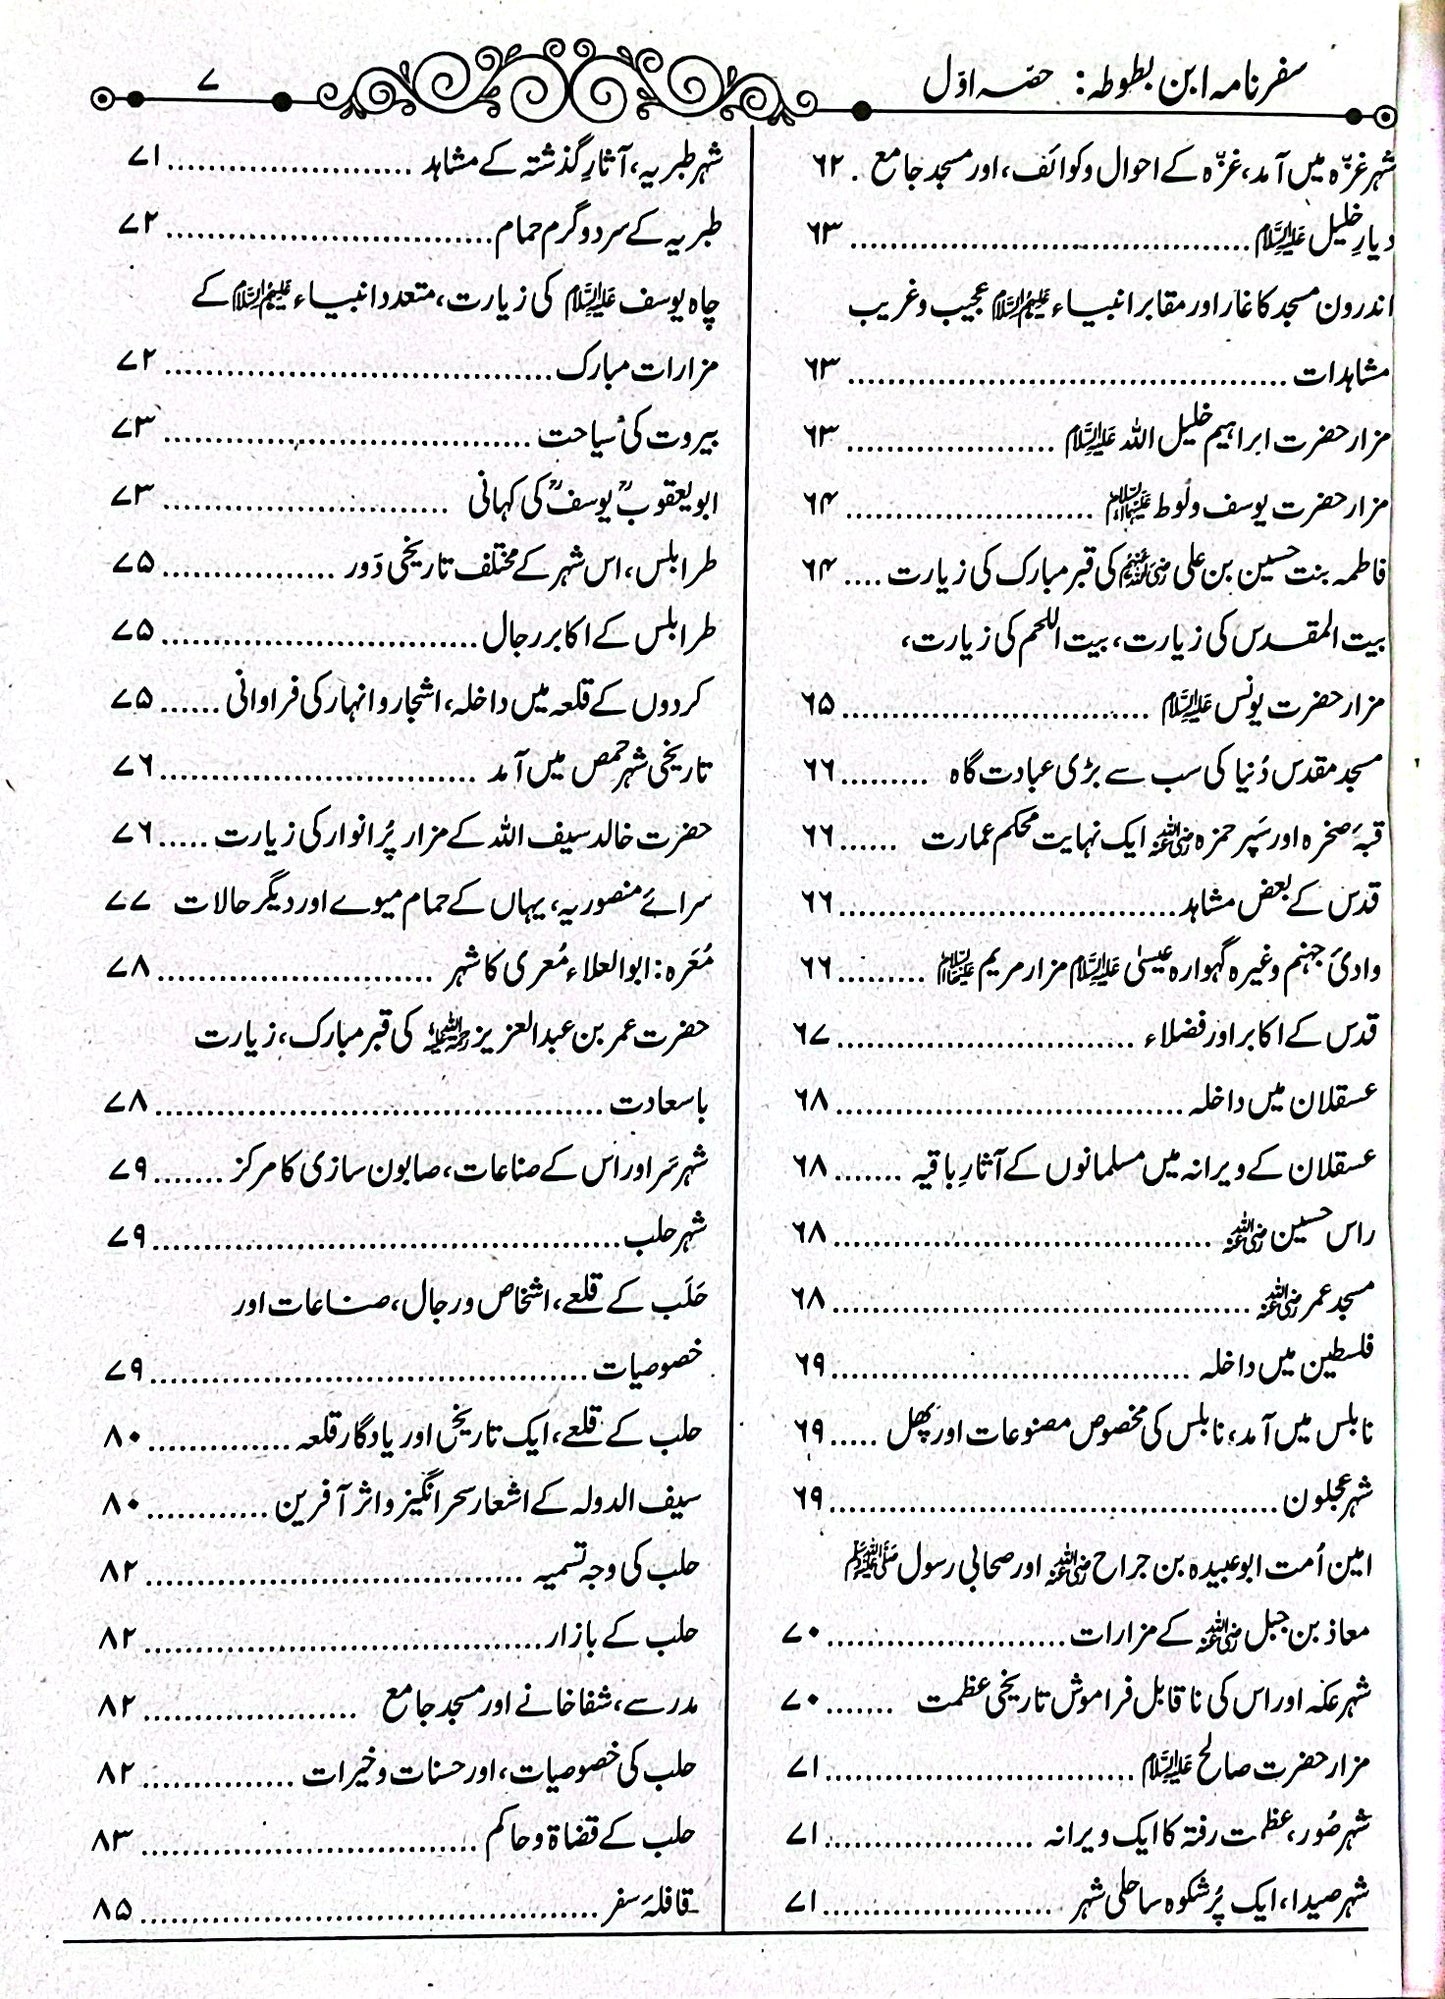 سفرنامہ ابن بطوطہ: حصہ اوّل
۷
شہر غزّہ میں آمد، غزّہ کے احوال و کوائف، اور مسجد جامع . ۶۲
دیارِ خلیل علیہ السلام ........ ۶۳
اندرون مسجد کا غار اور مقابر انبیاء علیہم السلام عجیب و غریب
مشاہدات ........ ۶۳
مزار حضرت ابراہیم خلیل اللہ علیہ السلام ........ ۶۳
مزار حضرت یوسف و لُوط علیہما السلام ........ ۶۴
فاطمہ بنت حسین بن علی رضی اللہ عنہم کی قبر مبارک کی زیارت .... ۶۴
بیت المقدس کی زیارت، بیت اللحم کی زیارت،
مزار حضرت یونس علیہ السلام ........ ۶۵
مسجد مقدس دُنیا کی سب سے بڑی عبادت گاہ ........ ۶۶
قبہَ صخرہ اور سَپر حمزہ رضی اللہ عنہ ایک نہایت محکم عمارت ...... ۶۶
قدس کے بعض مشاہد ........ ۶۶
وادیٔ جہنم وغیرہ گہوارہ عیسیٰ علیہ السلام مزار مریم علیہا السلام ........ ۶۶
قدس کے اکابر اور فضلاء ........ ۶۷
عسقلان میں داخلہ ........ ۶۸
عسقلان کے ویرانہ میں مسلمانوں کے آثارِ باقیہ ....... ۶۸
راس حسین رضی اللہ عنہ ........ ۶۸
مسجد عمر رضی اللہ عنہ ........ ۶۸
فلسطین میں داخلہ ........ ۶۹
نابلس میں آمد، نابلس کی مخصوص مصنوعات اور پھل ..... ۶۹
شہر عجلون ........ ۶۹
امین اُمت ابوعبیدہ بن جراح رضی اللہ عنہ اور صحابی رسول صلی اللہ علیہ وسلم
معاذ بن جبل رضی اللہ عنہ کے مزارات ........ ۷۰
شہر عکہ اور اس کی ناقابل فراموش تاریخی عظمت ....... ۷۰
مزار حضرت صالح علیہ السلام ........ ۷۱
شہر صُور، عظمت رفتہ کا ایک ویرانہ ........ ۷۱
شہر صیدا، ایک پُرشکوہ ساحلی شہر ........ ۷۱
شہر طبریہ، آثارِ گذشتہ کے مشاہد ........ ۷۱
طبریہ کے سرد و گرم حمام ........ ۷۲
چاہ یوسف علیہ السلام کی زیارت، متعدد انبیاء علیہم السلام کے
مزارات مبارک ........ ۷۲
بیروت کی سیاحت ........ ۷۳
ابویعقوبؒ یوسفؒ کی کہانی ........ ۷۳
طرابلس، اس شہر کے مختلف تاریخی دَور ........ ۷۵
طرابلس کے اکابر رجال ........ ۷۵
کردوں کے قلعہ میں داخلہ، اشجار و انہار کی فراوانی ...... ۷۵
تاریخی شہر حمص میں آمد ........ ۷۶
حضرت خالد سیف اللہ کے مزار پُرانوار کی زیارت ..... ۷۶
سرائے منصوریہ، یہاں کے حمام میوے اور دیگر حالات ۷۷
مُعَرہ: ابوالعلاء مُعری کا شہر ........ ۷۸
حضرت عمر بن عبدالعزیز رحمۃ اللہ علیہ کی قبر مبارک، زیارت
باسعادت ........ ۷۸
شہر سَر اور اس کے صناعات، صابون سازی کا مرکز ....... ۷۹
شہر حلب ........ ۷۹
حَلَب کے قلعے، اشخاص و رجال، صناعات اور
خصوصیات ........ ۷۹
حلب کے قلعے، ایک تاریخی اور یادگار قلعہ ........ ۸۰
سیف الدولہ کے اشعار سحر انگیز و اثر آفرین ........ ۸۰
حلب کی وجہ تسمیہ ........ ۸۲
حلب کے بازار ........ ۸۲
مدرسے، شفاخانے اور مسجد جامع ........ ۸۲
حلب کی خصوصیات، اور حسنات و خیرات ........ ۸۲
حلب کے قضاۃ و حاکم ........ ۸۳
قافلہَ سفر ........ ۸۵